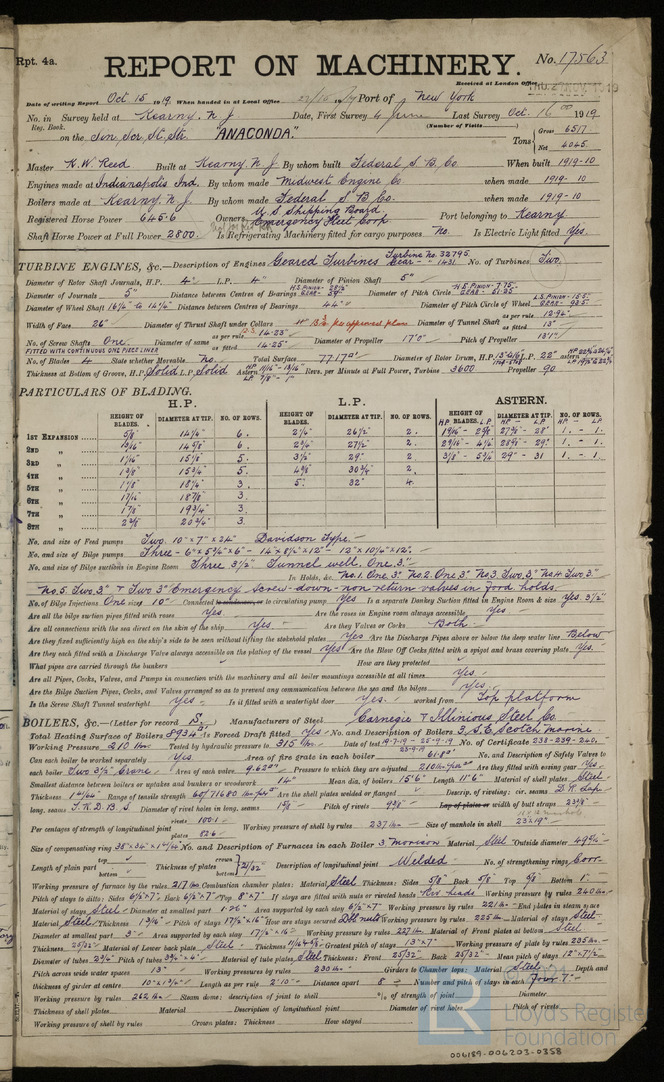 Rpt. 4a.
REPORT ON MACHINERY. No. 17563
Received at London Office
Date of writing Report Oct 15 1919 When handed in at Local Office Port of New York
No. in Reg. Book. Survey held at Kearny, N.J. Date, First Survey 4 June Last Survey Oct. 16 1919
(Number of Visits)
on the Sin. Scr. St. Str. "ANACONDA." Tons Gross 6517 Net 4045
Master H.W. Reed Built at Kearny N.J. By whom built Federal S.B. Co. When built 1919-10
Engines made at Indianapolis Ind. By whom made Midwest Engine Co when made 1919-10
Boilers made at Kearny N.J. By whom made Federal S.B. Co. when made 1919-10
Registered Horse Power 645.6 Owners U.S. Shipping Board Emergency Fleet Corp Port belonging to Kearny
Shaft Horse Power at Full Power 2800. Is Refrigerating Machinery fitted for cargo purposes No. Is Electric Light fitted Yes.
TURBINE ENGINES, &c.—Description of Engines Geared Turbines Turbine No. 32795 Gear 1431 No. of Turbines Two
Diameter of Rotor Shaft Journals, H.P. 4" L.P. 4" Diameter of Pinion Shaft 5"
Diameter of Journals 5" Distance between Centres of Bearings Diameter of Pitch Circle
Diameter of Wheel Shaft Distance between Centres of Bearings 44" Diameter of Pitch Circle of Wheel
Width of Face 26" Diameter of Thrust Shaft under Collars Diameter of Tunnel Shaft as per rule 12.96" as fitted 13"
No. of Screw Shafts One Diameter of same as per rule 14.23" as fitted 14.25" Diameter of Propeller 17'0" Pitch of Propeller 13'1"
FITTED WITH CONTINUOUS ONE PIECE LINER
No. of Blades 4 State whether Moveable No. Total Surface 77.17 Diameter of Rotor Drum, H.P. L.P. 22" astern
Thickness at Bottom of Groove, H.P. Solid L.P. Solid Astern Revs. per Minute at Full Power, Turbine 3600 Propeller 90
PARTICULARS OF BLADING.
H.P. L.P. ASTERN.
HEIGHT OF BLADES. DIAMETER AT TIP. NO. OF ROWS. HEIGHT OF BLADES. DIAMETER AT TIP. NO. OF ROWS. HEIGHT OF BLADES. DIAMETER AT TIP. NO. OF ROWS.
1ST EXPANSION 5/8" 14 1/4" 6. 2 1/4" 26 1/2" 2. 1. - 1.
2ND " 6. 2 3/4" 27 1/2" 2. 1. - 1.
3RD " 15 1/8" 5. 3 1/2" 29" 2 29" - 31 1. - 1.
4TH " 1 3/8" 15 3/4" 5. 30 3/4" 2.
5TH " 3. 5" 32" 4.
6TH " 18 7/8" 3.
7TH " 19 3/4" 3.
8TH " 20 3/4" 3.
No. and size of Feed pumps Two. 10" x 7" x 24" Davidson Type.
No. and size of Bilge pumps Three - 6" x 5 3/4" x 6" - 14" x 8 1/2" x 12" - 12" x 10 1/4" x 12".
No. and size of Bilge suctions in Engine Room Three 3 1/2" Tunnel well. One. 3"
In Holds, &c. No. 1. One. 3" No. 2. One. 3" No. 3. Two. 3" No. 4. Two. 3"
No. 5. Two. 3" + Two 3" Emergency screw-down non return valves in Food holds.
No. of Bilge Injections One sizes 10" Connected to condenser, or to circulating pump Yes Is a separate Donkey Suction fitted in Engine Room & size Yes. 3 1/2"
Are all the bilge suction pipes fitted with roses Yes Are the roses in Engine room always accessible Yes
Are all connections with the sea direct on the skin of the ship Yes. Are they Valves or Cocks Both
Are they fixed sufficiently high on the ship's side to be seen without lifting the stokehold plates Yes Are the Discharge Pipes above or below the deep water line Below
Are they each fitted with a Discharge Valve always accessible on the plating of the vessel Yes Are the Blow Off Cocks fitted with a spigot and brass covering plate Yes.
What pipes are carried through the bunkers How are they protected
Are all Pipes, Cocks, Valves, and Pumps in connection with the machinery and all boiler mountings accessible at all times Yes.
Are the Bilge Suction Pipes, Cocks, and Valves arranged so as to prevent any communication between the sea and the bilges Yes.
Is the Screw Shaft Tunnel watertight Yes Is it fitted with a watertight door Yes. worked from Top platform
BOILERS, &c.—(Letter for record S) Manufacturers of Steel Carnegie & Illinious Steel Co.
Total Heating Surface of Boilers 8934 Is Forced Draft fitted Yes No. and Description of Boilers 3 S.E. Scotch Marine
Working Pressure 210 lbs. Tested by hydraulic pressure to 315 lbs. Date of test 19-7-19 - 25-9-19 No. of Certificate 238-239-240.
Can each boiler be worked separately Yes. Area of fire grate in each boiler 61.82 No. and Description of Safety Valves to
each boiler Two 3 1/2" Crane Area of each valve 9.62 Pressure to which they are adjusted 210 lbs. per Are they fitted with easing gear Yes
Smallest distance between boilers or uptakes and bunkers or woodwork 14" Mean dia. of boilers 15'6" Length 11'6" Material of shell plates Steel
Thickness Range of tensile strength Are the shell plates welded or flanged Descrip. of riveting: cir. seams D.R. Lap
long. seams T.R.D.B.S Diameter of rivet holes in long. seams Pitch of rivets 9 3/8" Lap of plates or width of butt straps
Per centages of strength of longitudinal joint rivets 100.1 plates 82.6 Working pressure of shell by rules 237 lbs Size of manhole in shell
Size of compensating ring No. and Description of Furnaces in each Boiler 3 Morison Material Steel Outside diameter
Length of plain part top bottom Thickness of plates crown bottom 21/32" Description of longitudinal joint Welded No. of strengthening rings Corr.
Working pressure of furnace by the rules 217 lbs Combustion chamber plates: Material Steel Thickness: Sides 5/8" Back 5/8" Top 5/8" Bottom 1"
Pitch of stays to ditto: Sides 6 1/2" x 7" Back 6 1/2" x 7" Top 8" x 7" If stays are fitted with nuts or riveted heads Riv. heads Working pressure by rules 240 lbs
Material of stays Steel Diameter at smallest part Area supported by each stay 6 1/2" x 7" Working pressure by rules 221 lbs End plates in steam space
Material Steel Thickness Pitch of stays How are stays secured Dbl nuts Working pressure by rules 225 lbs Material of stays Steel
Diameter at smallest part 3" Area supported by each stay Working pressure by rules 227 lbs Material of Front plates at bottom Steel
Thickness 25/32" Material of Lower back plate Steel Thickness Greatest pitch of stays 13" x 7" Working pressure of plate by rules 205 lbs.
Diameter of tubes 2 3/4" Pitch of tubes 3 3/4" x 4" Material of tube plates Steel Thickness: Front 25/32" Back 25/32" Mean pitch of stays
Pitch across wide water spaces 13" Working pressures by rules 230 lbs Girders to Chamber tops: Material Steel Depth and
thickness of girder at centre Length as per rule 2'10" Distance apart 8 Number and pitch of stays in each Four 7"
Working pressure by rules 262 lbs Steam dome: description of joint to shell % of strength of joint Diameter
Thickness of shell plates Material Description of longitudinal joint Diameter of rivet holes Pitch of rivets
Working pressure of shell by rules Crown plates: Thickness How stayed
© 2021
LR
Lloyd's Register
Foundation
006189-006203-0358